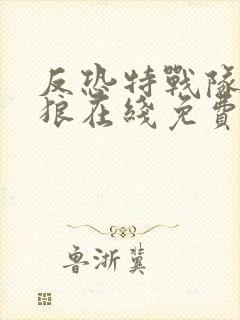 反恐特戰隊
狼在綫免費
魯浙冀